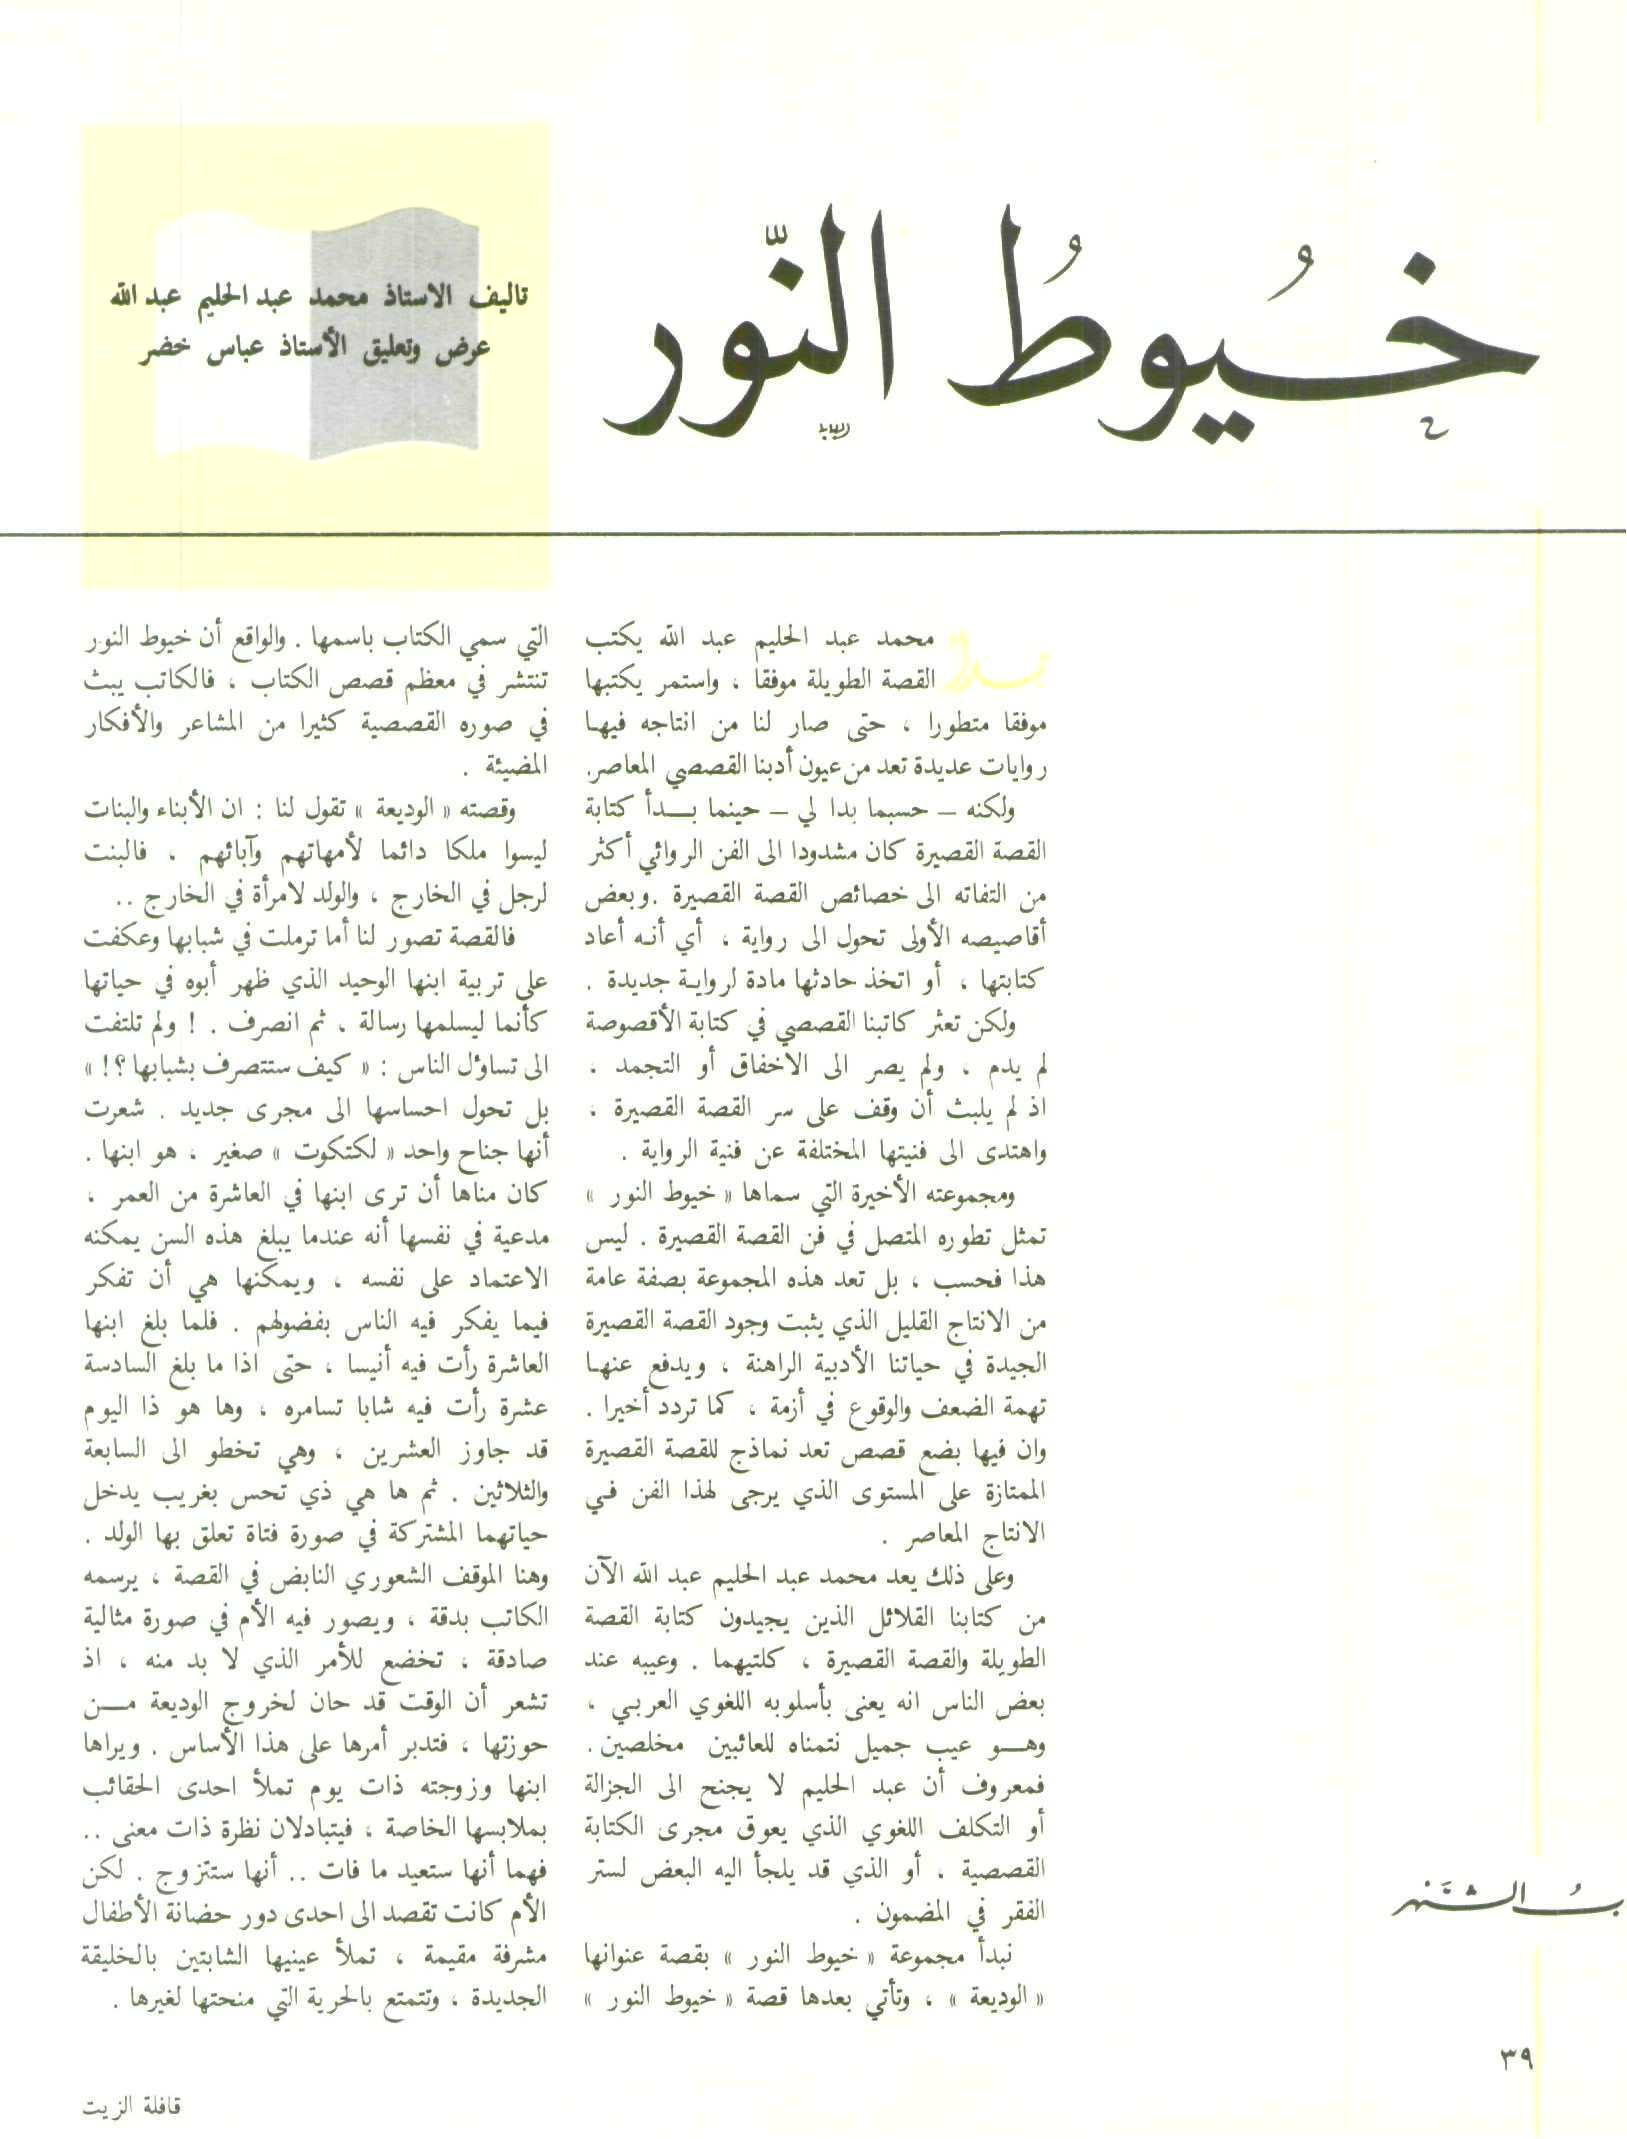 خُيوطُ النّور
تاليف الاستاذ محمد عبد الحليم عبد الله
عرض وتعليق الأستاذ عباس خضر
بدأ محمد عبد الحليم عبد الله يكتب
القصة الطويلة موفقا ، واستمر يكتبها
موفقا متطورا ، حتى صار لنا من انتاجه فيها
روايات عديدة تعد من عيون أدبنا القصصي المعاصر.
ولكنه – حسبما بدا لي – حينما بدأ كتابة
القصة القصيرة كان مشدودا الى الفن الروائي أكثر
من التفاته الى خصائص القصة القصيرة . وبعض
أقاصيصه الأولى تحول الى رواية ، أي أنه أعاد
كتابتها ، أو اتخذ حادثها مادة لرواية جديدة .
ولكن تعثر كاتبنا القصصي في كتابة الأقصوصة
لم يدم ، ولم يصر الى الاخفاق أو التجمد ،
اذ لم يلبث أن وقف على سر القصة القصيرة ،
واهتدى الى فنيتها المختلفة عن فنية الرواية .
ومجموعته الأخيرة التي سماها « خيوط النور »
تمثل تطوره المتصل في فن القصة القصيرة . ليس
هذا فحسب ، بل تعد هذه المجموعة بصفة عامة
من الانتاج القليل الذي يثبت وجود القصة القصيرة
الجيدة في حياتنا الأدبية الراهنة ، ويدفع عنها
تهمة الضعف والوقوع في أزمة ، كما تردد أخيرا .
وان فيها بضع قصص تعد نماذج للقصة القصيرة
الممتازة على المستوى الذي يرجى لهذا الفن في
الانتاج المعاصر .
وعلى ذلك يعد محمد عبد الحليم عبد الله الآن
من كتابنا القلائل الذين يجيدون كتابة القصة
الطويلة والقصة القصيرة ، كلتيهما . وعيبه عند
بعض الناس انه يعنى بأسلوبه اللغوي العربي ،
وهو عيب جميل نتمناه للعائبين مخلصين .
فمعروف أن عبد الحليم لا يجنح الى الجزالة
أو التكلف اللغوي الذي يعوق مجرى الكتابة
القصصية ، أو الذي قد يلجأ اليه البعض لستر
الفقر في المضمون .
نبدأ مجموعة « خيوط النور » بقصة عنوانها
« الوديعة » ، وتأتي بعدها قصة « خيوط النور »
التي سمي الكتاب باسمها . والواقع أن خيوط النور
تنتشر في معظم قصص الكتاب ، فالكاتب يبث
في صوره القصصية كثيرا من المشاعر والأفكار
المضيئة .
وقصته « الوديعة » تقول لنا : ان الأبناء والبنات
ليسوا ملكا دائما لأمهاتهم وآبائهم ، فالبنت
لرجل في الخارج ، والولد لامرأة في الخارج ..
فالقصة تصور لنا أما ترملت في شبابها وعكفت
على تربية ابنها الوحيد الذي ظهر أبوه في حياتها
كأنما ليسلمها رسالة ، ثم انصرف . ! ولم تلتفت
الى تساؤل الناس : « كيف ستتصرف بشبابها ؟! »
بل تحول احساسها الى مجرى جديد . شعرت
أنها جناح واحد « لكتكوت » صغير ، هو ابنها .
كان مناها أن ترى ابنها في العاشرة من العمر ،
مدعية في نفسها أنه عندما يبلغ هذه السن يمكنه
الاعتماد على نفسه ، ويمكنها هي أن تفكر
فيما يفكر فيه الناس بفضولهم . فلما بلغ ابنها
العاشرة رأت فيه أنيسا ، حتى اذا ما بلغ السادسة
عشرة رأت فيه شابا تسامره ، وها هو ذا اليوم
قد جاوز العشرين ، وهي تخطو الى السابعة
والثلاثين . ثم ها هي ذي تحس بغريب يدخل
حياتهما المشتركة في صورة فتاة تعلق بها الولد .
وهنا الموقف الشعوري النابض في القصة ، يرسمه
الكاتب بدقة ، ويصور فيه الأم في صورة مثالية
صادقة ، تخضع للأمر الذي لا بد منه ، اذ
تشعر أن الوقت قد حان لخروج الوديعة من
حوزتها ، فتدبر أمرها على هذا الأساس . ويراها
ابنها وزوجته ذات يوم تملأ احدى الحقائب
بملابسها الخاصة ، فيتبادلان نظرة ذات معنى ..
فهما أنها ستعيد ما فات .. أنها ستتزوج . لكن
الأم كانت تقصد الى احدى دور حضانة الأطفال
مشرفة مقيمة ، تملأ عينيها الشابتين بالخليقة
الجديدة ، وتتمتع بالحرية التي منحتها لغيرها .
الشهر
٣٩
قافلة الزيت